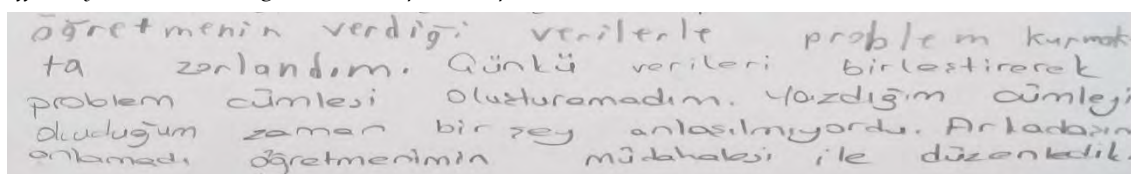 öğretmenin verdiği verilerle problem kurmak
ta zorlandım. Çünkü verileri birleştirerek
problem cümlesi oluşturamadım. Yazdığım cümleyi
okuduğum zaman bir şey anlaşılmıyordu. Arkadaşım
anlamadı öğretmenimin müdahalesi ile düzenledik.